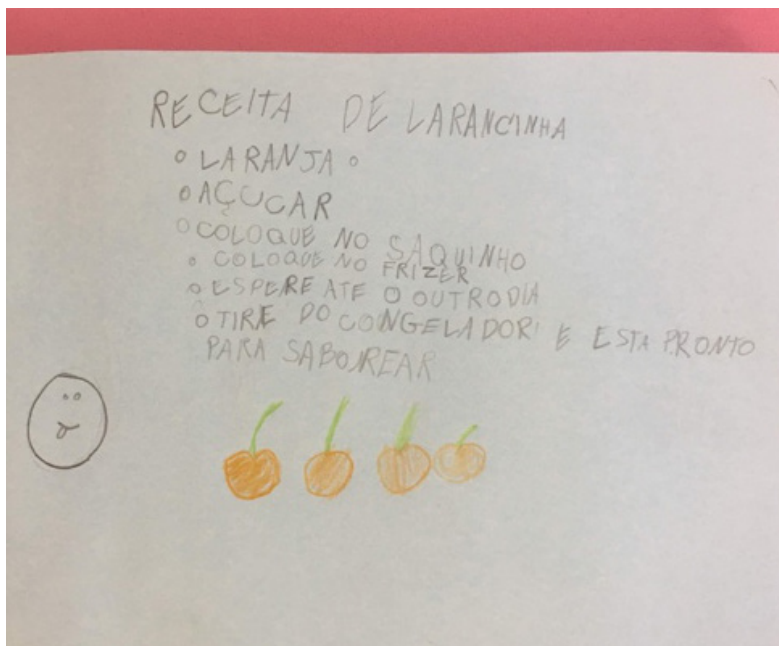 RECEITA DE LARANCINHA
° LARANJA °
° AÇUCAR
° COLOQUE NO SAQUINHO
° COLOQUE NO FRIZER
° ESPERE ATE O OUTRO DIA
° TIRE DO CONGELADOR E ESTA PRONTO
PARA SABOREAR